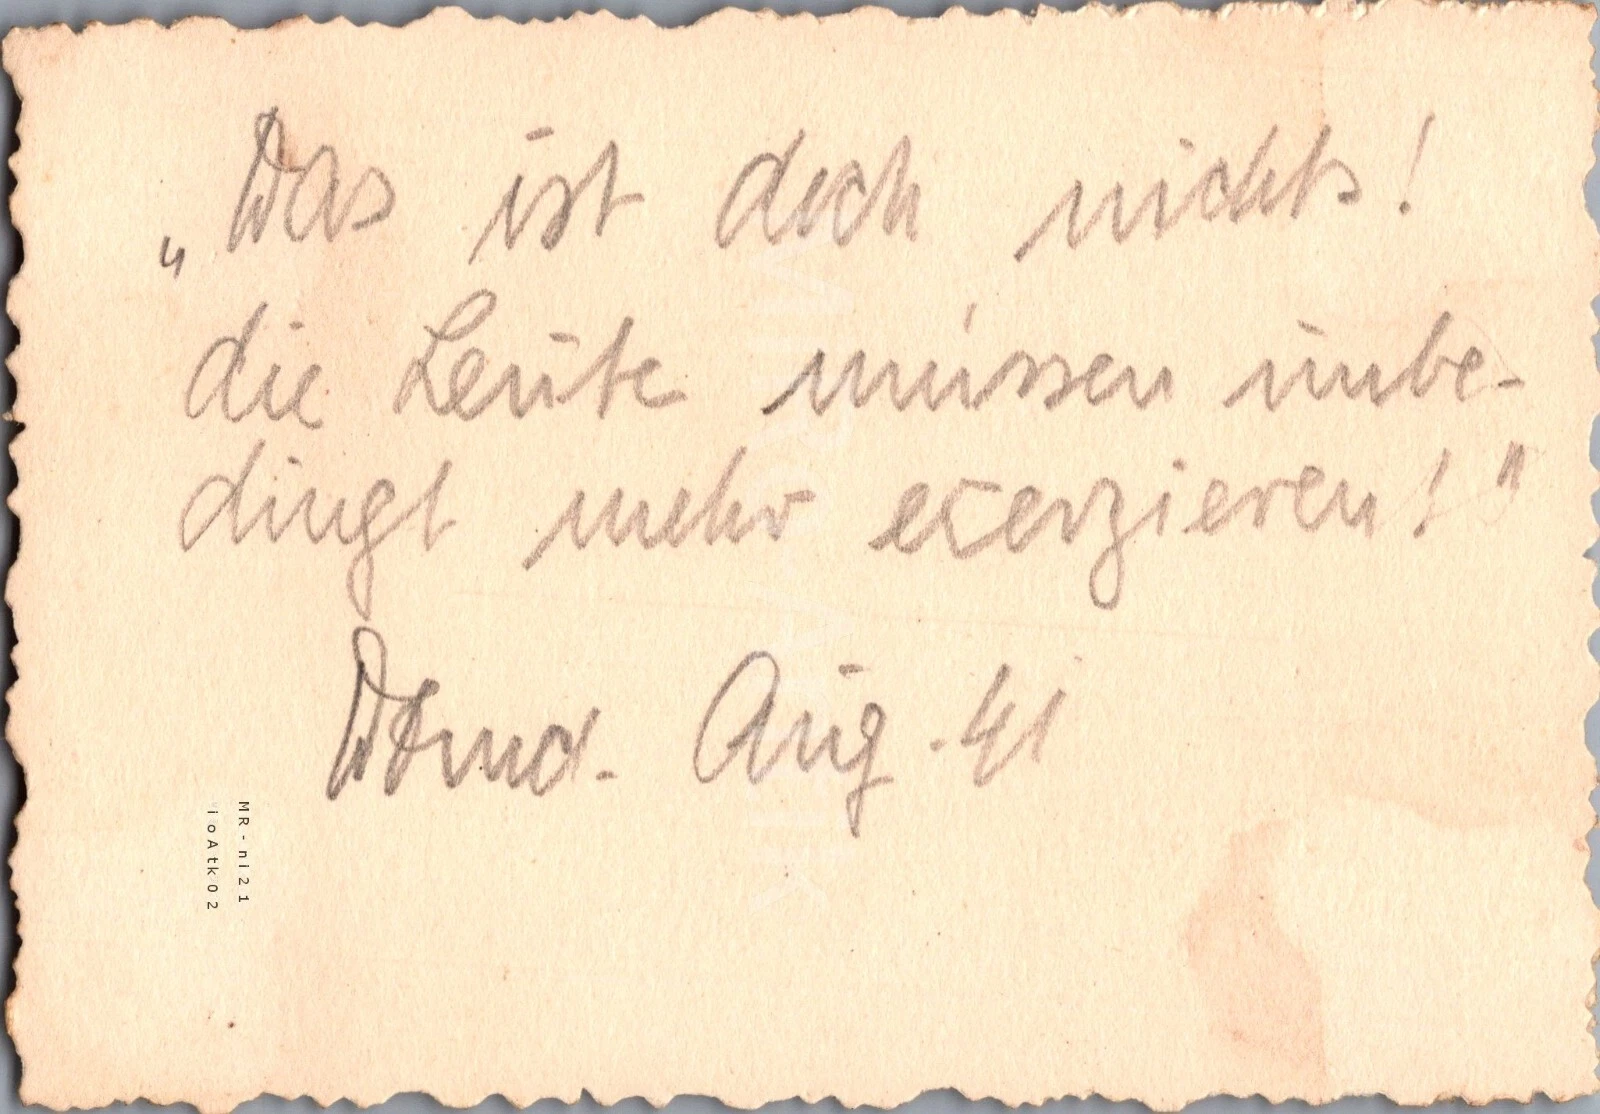 „Das ist doch nichts!
die Leute müssen unbe-
dingt mehr exerzieren!"
Aug. 41
MR-ni21
ioAtk02